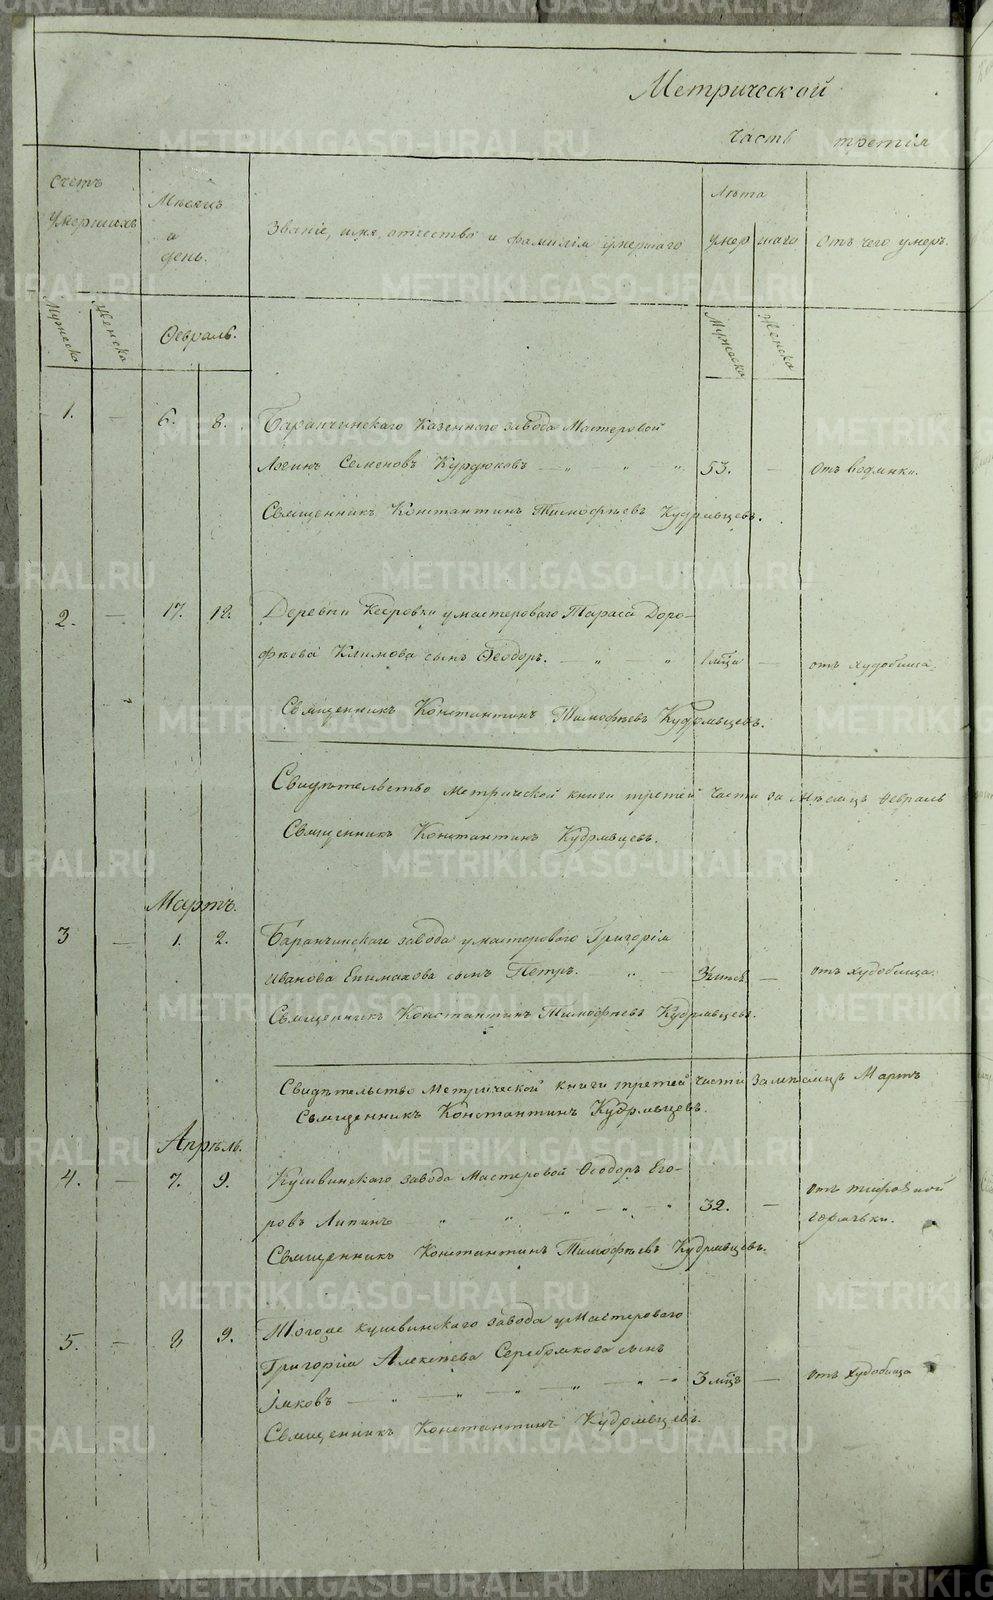 Метрической
часть третія
Счетъ умершихъ
Мѣсяцъ и день.
Званіе, имя, отчество и фамилія умершаго
Лѣта умершаго
отъ чего умеръ.
Мужеска
Женска
Февраль.
Мужеска
Женска
1. — 6. 8. Баранчинскаго Казеннаго завода Мастеровой
Логинъ Семеновъ Курдюковъ — „ — „ — „ 53. — отъ водянки.
Священникъ Константинъ Тимофѣевъ Кудрявцевъ.
2. — 17. 18. Деревни Кедровки у мастероваго Тараса Доро-
фѣева Климова сынъ Ѳеодоръ. — „ — „ 1 мѣс — отъ худобища.
Священникъ Константинъ Тимофѣевъ Кудрявцевъ.
Свидѣтельство метрической книги третей части за Мѣсяцъ Февраль
Священникъ Константинъ Кудрявцевъ.
Мартъ.
3 — 1. 2. Баранчинскаго завода у мастероваго Григорія
Иванова Епимахова сынъ Петръ. — „ — — отъ худобища.
Священникъ Константинъ Тимофѣевъ Кудрявцевъ.
Свидѣтельство Метрической книги третей части за мѣсяцъ Мартъ
Священникъ Константинъ Кудрявцевъ.
Апрѣль.
4. — 7. 9. Кушвинскаго завода Мастеровой Ѳеодоръ Его-
ровъ Липинъ — „ — „ — „ — „ — „ 32. — отъ тифозной
горячьки.
Священникъ Константинъ Тимофѣевъ Кудрявцевъ.
5. — 8 9. Тогоже кушвинскаго завода у Мастероваго
Григорія Алексѣева Серебрякова сынъ
Іяковъ — „ — „ — „ — „ — „ — „ 3 мѣц — отъ худобища
Священникъ Константинъ Кудрявцевъ.
METRIKI.GASO-URAL.RU